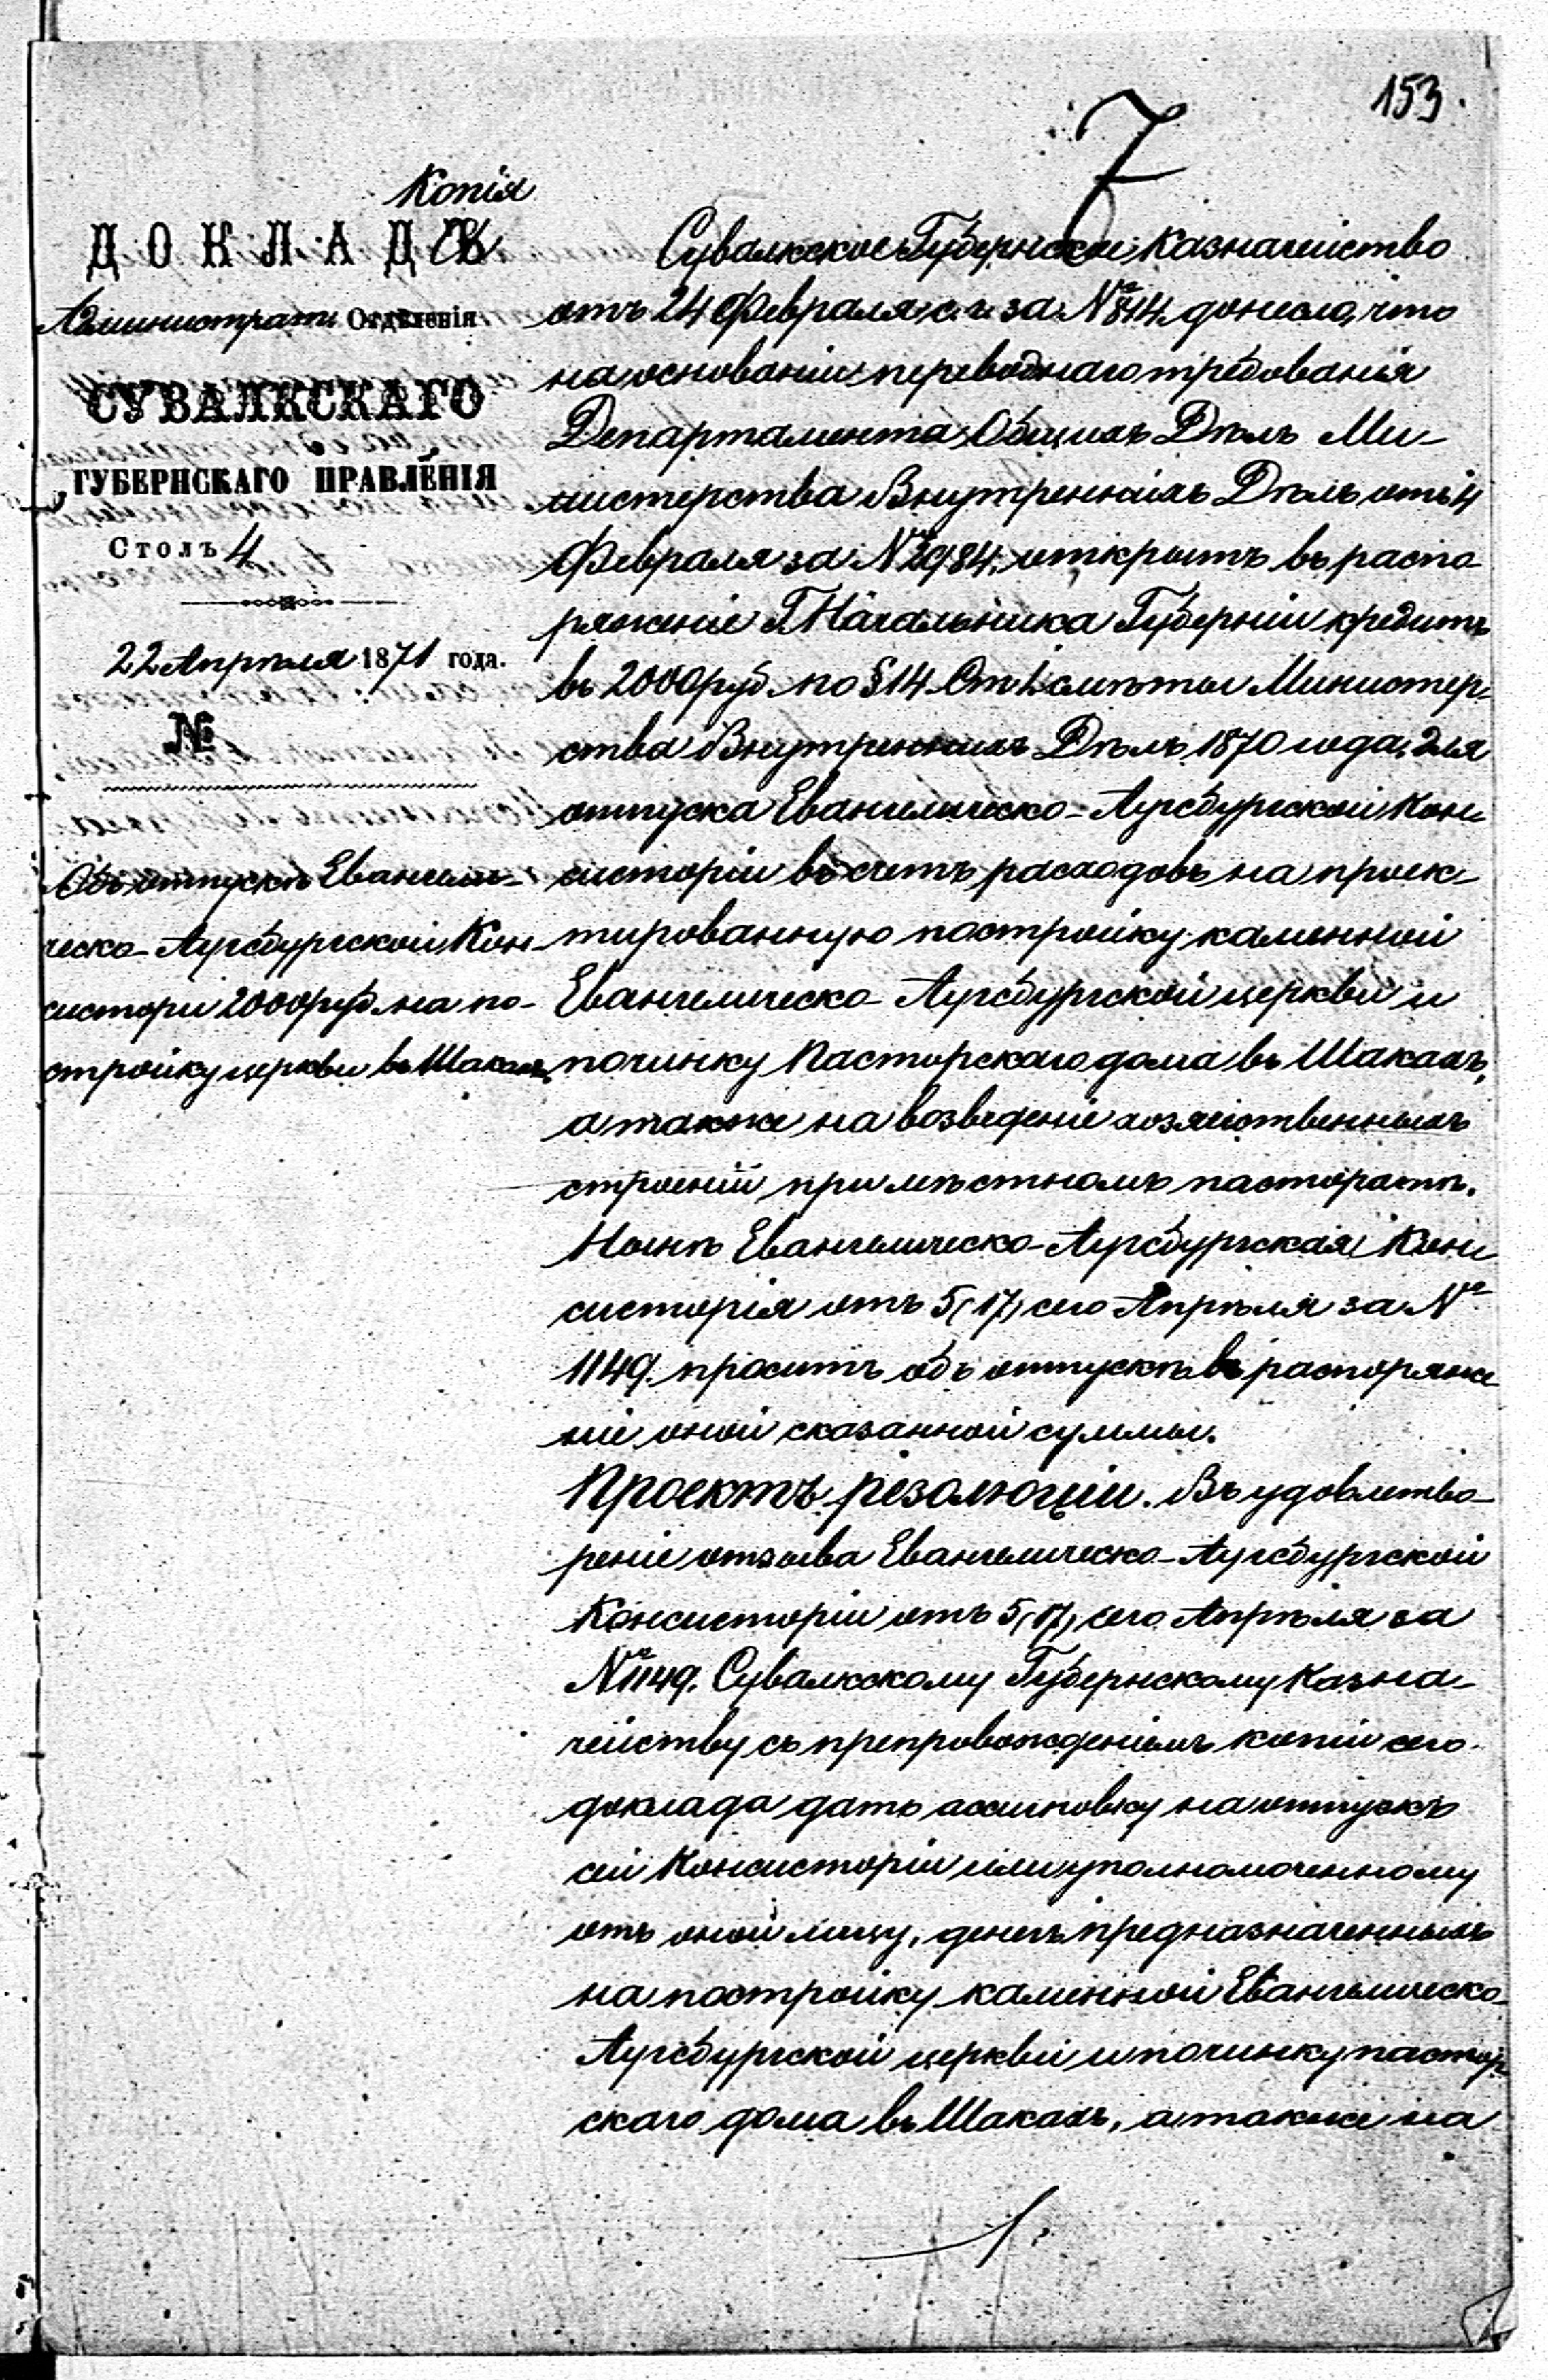 153.
7
Копія
ДОКЛАДЪ
Администрат. Отдѣленія
СУВАЛКСКАГО
ГУБЕРНСКАГО ПРАВЛЕНІЯ
Столъ 4
22 Апрѣля 1871 года.
№
Объ отпускѣ Евангели-
ческо-Аугсбургской Кон-
систори 2000 руб. на по-
стройку церкви въ Шакахъ.
Сувалкское Губернское Казначейство
отъ 24 Февраля с. г. за № 814. донесло, что
на основаніи переводнаго требованія
Департамента Общихъ Дѣлъ Ми-
нистерства Внутреннихъ Дѣлъ отъ 4
Февраля за № 2984, открытъ въ распо
ряженіе Г. Начальника Губерніи кредитъ
въ 2000 руб. по § 14 Ст. 1 смѣты Министер-
ства Внутреннихъ Дѣлъ 1870 года, для
отпуска Евангелическо-Аугсбургской Кон
систоріи въ счетъ расходовъ на проек-
тированную постройку каменной
Евангелическо-Аугсбургской церкви и
починку Пасторскаго дома въ Шакахъ,
а также на возведеніе хозяйственныхъ
строеній при мѣстномъ пасторатѣ.
Нынѣ Евангелическо-Аугсбургская Кон
систорія отъ 5 (17) сего Апрѣля за №
1149. проситъ объ отпускѣ въ распоряже
ніе оной сказанной суммы.
Проектъ резолюціи. Въ удовлетво-
реніе отзыва Евангелическо-Аугсбургской
Консисторіи отъ 5 (17) сего Апрѣля за
№ 1149. Сувалкскому Губернскому Казна-
чейству съ препровожденіемъ копіи сего
доклада дать ассигновку на отпускъ
сей Консисторіи или уполномоченному
отъ оной лицу, денегъ предназначенныхъ
на постройку каменной Евангелическо-
Аугсбургской церкви и починку пастор
скаго дома въ Шакахъ, а также на